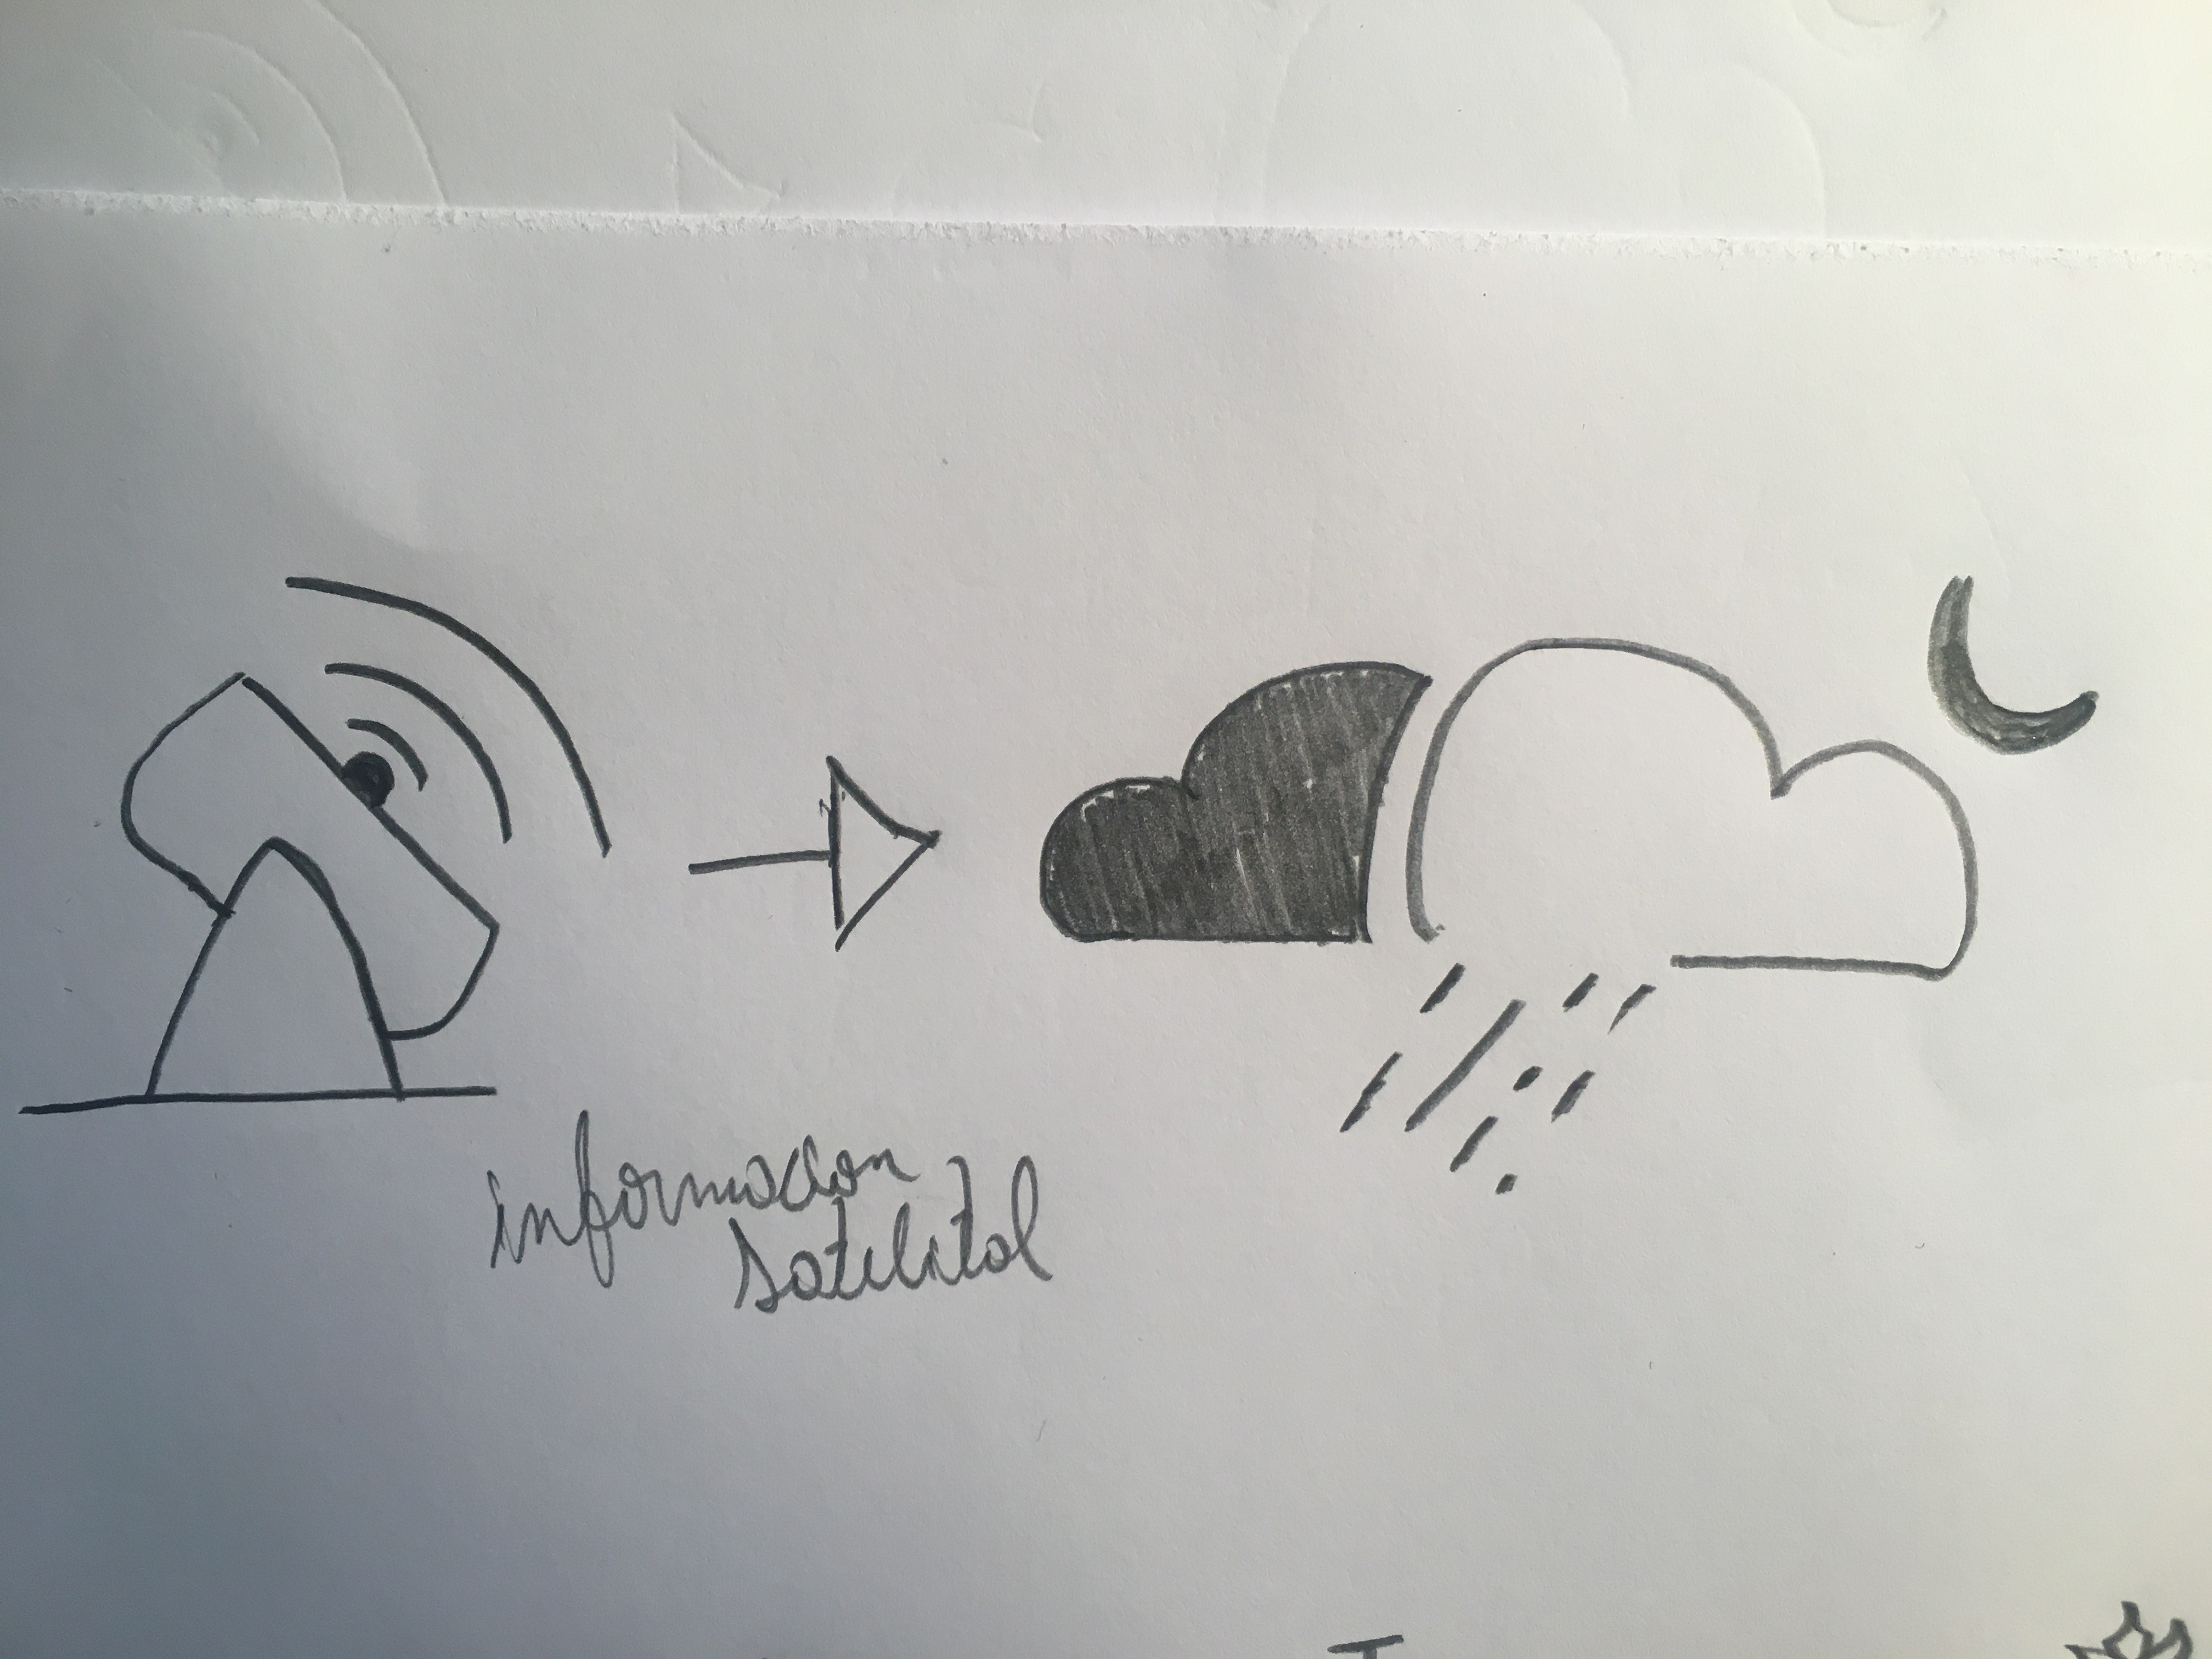 informacion
satelital